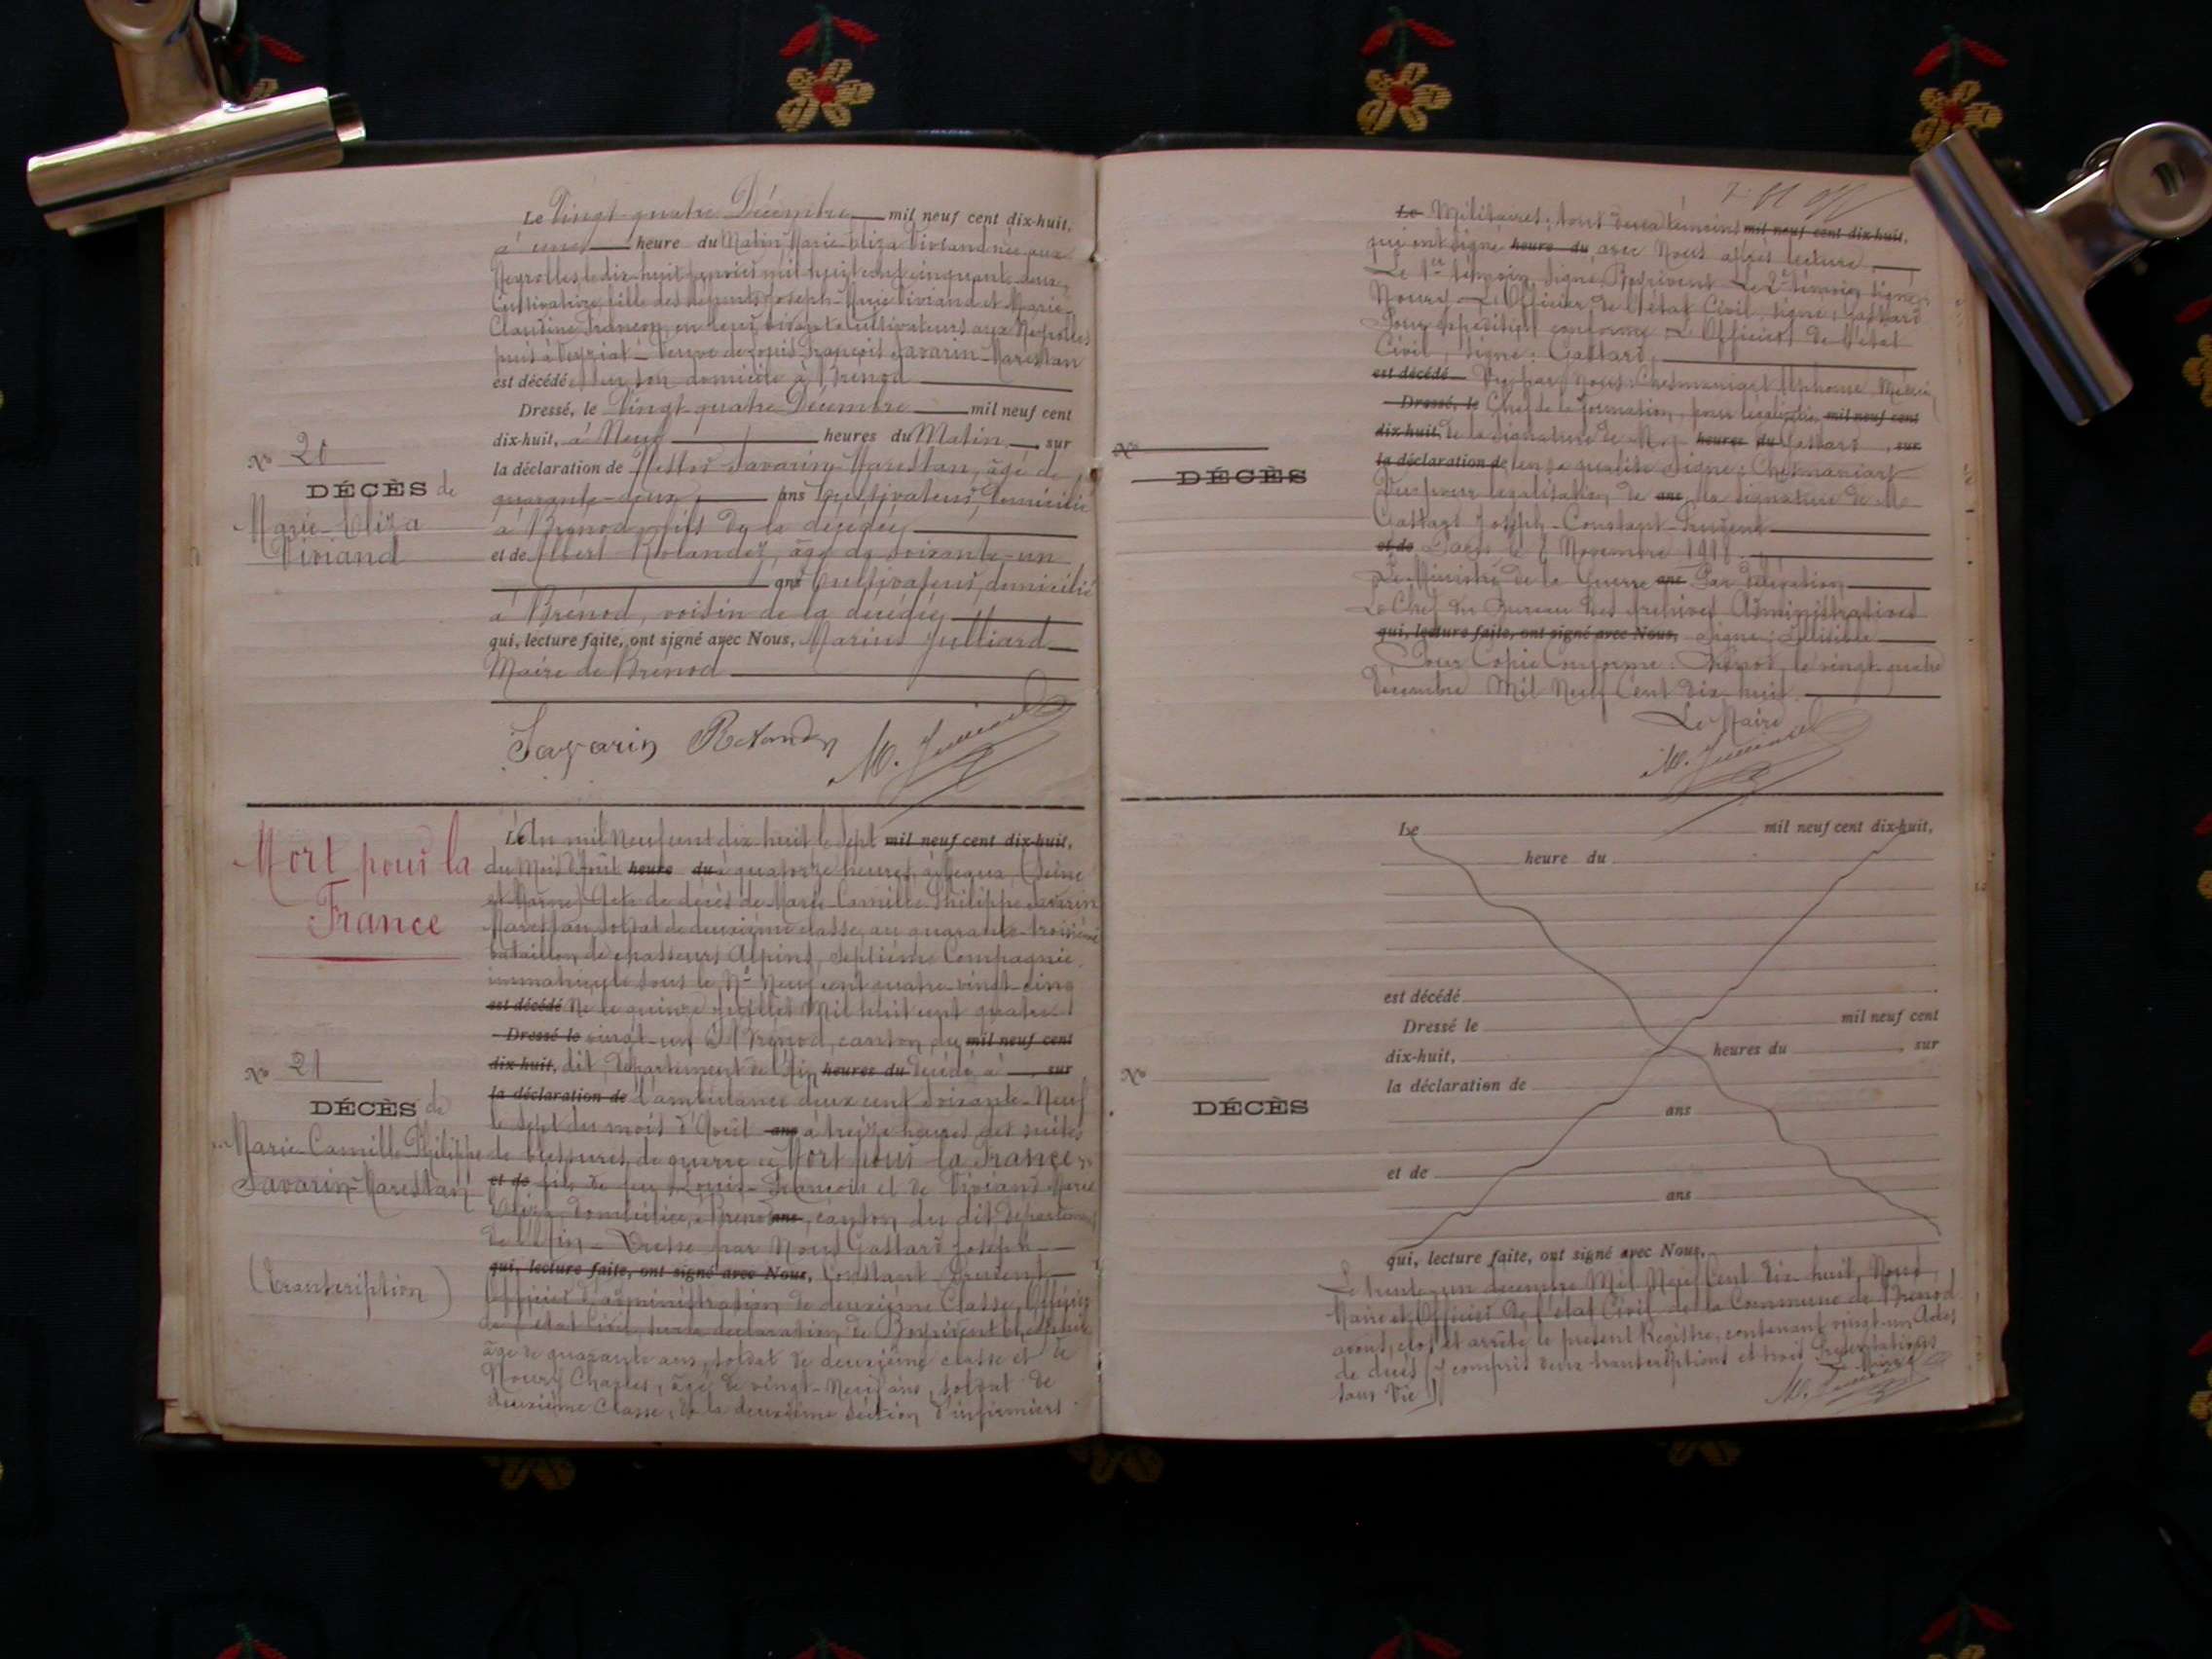 Le Vingt-quatre Décembre mil neuf cent dix-huit,
à une heure du Matin Marie-Eliza Viviand née aux
Neyrolles le dix-huit janvier mil huit cent cinquante-deux,
Cultivatrice, fille des défunts Joseph-Marie Viviand et Marie-
Claudine Françon, en leur vivant Cultivateurs aux Neyrolles
puis à Veyziat - Veuve de Louis François Savarin-Marestan
est décédée en son domicile à Brénod
Dressé, le Vingt-quatre Décembre mil neuf cent
dix-huit, à Neuf heures du Matin, sur
la déclaration de Savarin-Marestan, âgé de
quarante-deux ans Cultivateur, domicilié
à Brénod, fils de la décédée
et de Albert Rolandez, âgé de soixante-un
ans Cultivateur, domicilié
à Brénod, voisin de la décédée
qui, lecture faite, ont signé avec Nous, Marius Julliard
Maire de Brénod
Savarin
No 20
DÉCÈS de
Marie-Eliza
Viviand
Mort pour la
France
No 21
DÉCÈS de
Marie-Camille-Philippe
Savarin-Marestan
(Transcription)
L'An mil neuf cent dix huit le sept mil neuf cent dix-huit,
du Mois d'Août heure du à quatorze heures, à (Seine
et Marne) Acte de décès de Marie-Camille Philippe Savarin
Marestan, Soldat de deuxième classe au quarante-troisième
bataillon de chasseurs Alpins, Septième Compagnie,
immatriculé sous le No Neuf cent quatre-vingt-cinq
est décédé Né le quinze Juillet Mil huit cent quatre
Dressé le vingt-un à Brénod, canton du mil neuf cent
dix-huit, dit, département de l'Ain heures du décédé à sur
la déclaration de l'ambulance deux cent soixante-Neuf
le sept du mois d'Août ans à treize heures, des suites
de blessures de guerre "Mort pour la France"
et de fils de feu Louis-François et de Viviand Marie
Eliza, domiciliée à Brénod ans, canton du dit, département
de l'Ain - Dressé par Nous Gattard Joseph
qui, lecture faite, ont signé avec Nous, Constant Prudent
Officier d'administration de deuxième Classe, Officier
de l'état Civil, sur la déclaration de
âgé de quarante ans, soldat de deuxième classe et de
Noury Charles, âgé de vingt-Neuf ans, soldat de
deuxième Classe, de la deuxième Section d'infirmiers
Le Militaires, tous deux témoins mil neuf cent dix-huit,
qui ont signé heure du avec Nous après lecture
Le 1er témoin, signé, Le 2e témoin signé
Noury - L'Officier de l'état Civil, signé : Gattard
Pour expédition conforme L'Officier de l'état
Civil, Signé : Gattard,
est décédé Vu par Nous Alphonse, Médecin
Dressé, le Chef de la formation, pour légalisation mil neuf cent
dix-huit, de la Signature de M. heures du Gattard, sur
la déclaration de en sa qualité Signé :
Vu pour légalisation de ans la signature de M.
Gattard Joseph-Constant-Prudent
et de Paris le 8 Novembre 1918.
Le Ministre de la Guerre ans Par délégation
Le Chef du Bureau des Archives Administratives
qui, lecture faite, ont signé avec Nous, Signé : Illisible
Pour Copie Conforme : Brénod, le vingt-quatre
décembre Mil Neuf Cent dix-huit.
Le Maire
No
DÉCÈS
Le mil neuf cent dix-huit,
heure du
est décédé
Dressé le mil neuf cent
dix-huit, heures du , sur
la déclaration de
ans
et de
ans
qui, lecture faite, ont signé avec Nous,
No
DÉCÈS
Le trente-un décembre Mil Neuf Cent dix-huit, Nous
Maire et Officier de l'état Civil de la Commune de Brénod
avons clos et arrêté le présent Registre, contenant vingt-un Actes
de décès (y compris deux transcriptions et trois présentations
sans Vie)
Le Maire